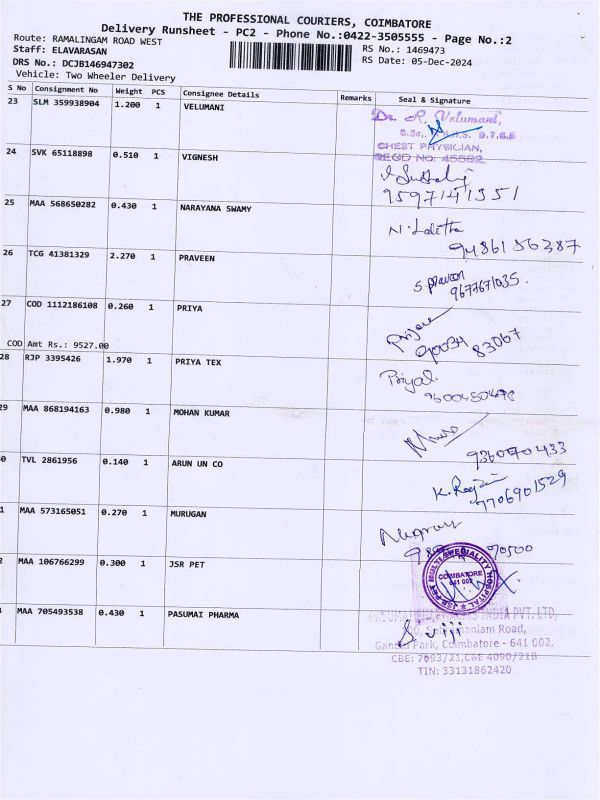 THE PROFESSIONAL COURIERS, COIMBATORE
Delivery Runsheet - PC2 - Phone No.:0422-3505555 - Page No.:2
Route: RAMALINGAM ROAD WEST
RS No.: 1469473
Staff: ELAVARASAN
RS Date: 05-Dec-2024
DRS No.: DCJB146947302
Vehicle: Two Wheeler Delivery
S No Consignment No Weight PCS Consignee Details Remarks Seal & Signature
23 SLM 359938904 1.200 1 VELUMANI
Dr. R. Velumani,
CHEST PHYSICIAN,
REGD NO: 45582
24 SVK 65118898 0.510 1 VIGNESH
9597141351
25 MAA 568650282 0.430 1 NARAYANA SWAMY
N. Lalitha
9486156387
26 TCG 41381329 2.270 1 PRAVEEN
S. praveen
9677671035.
27 COD 1112186108 0.260 1 PRIYA
90034 83067
COD Amt Rs.: 9527.00
28 RJP 3395426 1.970 1 PRIYA TEX
29 MAA 868194163 0.980 1 MOHAN KUMAR
0 TVL 2861956 0.140 1 ARUN UN CO
7706901529
1 MAA 573165051 0.270 1 MURUGAN
90500
2 MAA 106766299 0.300 1 JSR PET
MULTI SPECIALITY HOSPITAL
COIMBATORE
641 002
MAA 705493538 0.430 1 PASUMAI PHARMA
INDIA PVT.LTD,
Road,
Park, Coimbatore - 641 002.
CBE: 7693/21,CBE 4090/21B
TIN: 33131862420